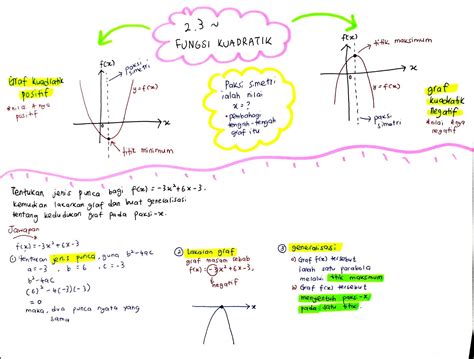 2.3 ~
FUNGSI KUADRATIK
f(x)
paksi
simetri
Graf kuadratik
positif
* nilai a nya
positif
y=f(x)
x
titik minimum
Paksi simetri
ialah nilai
x = ?
* pembahagi
tengah-tengah
graf itu
f(x)
titik maksimum
x
y=f(x)
paksi
simetri
graf
kuadratik
negatif
* nilai a nya
negatif
Tentukan jenis punca bagi f(x) = -3x²+6x-3.
Kemudian lakarkan graf dan buat generalisasi
tentang kedudukan graf pada paksi-x.
Jawapan
f(x) = -3x²+6x-3
① tentukan jenis punca, guna b²-4ac
a = -3 , b = 6 , c = -3
b²-4ac
(6)²-4(-3)(-3)
= 0
maka, dua punca nyata yang
sama
② Lakaran graf
graf masam sebab
f(x) = -3x²+6x-3,
negatif
x
③ generalisasi
a) Graf f(x) tersebut
ialah satu parabola
melalui titik maksimum
b) Graf f(x) tersebut
menyentuh paksi-x
pada satu titik.